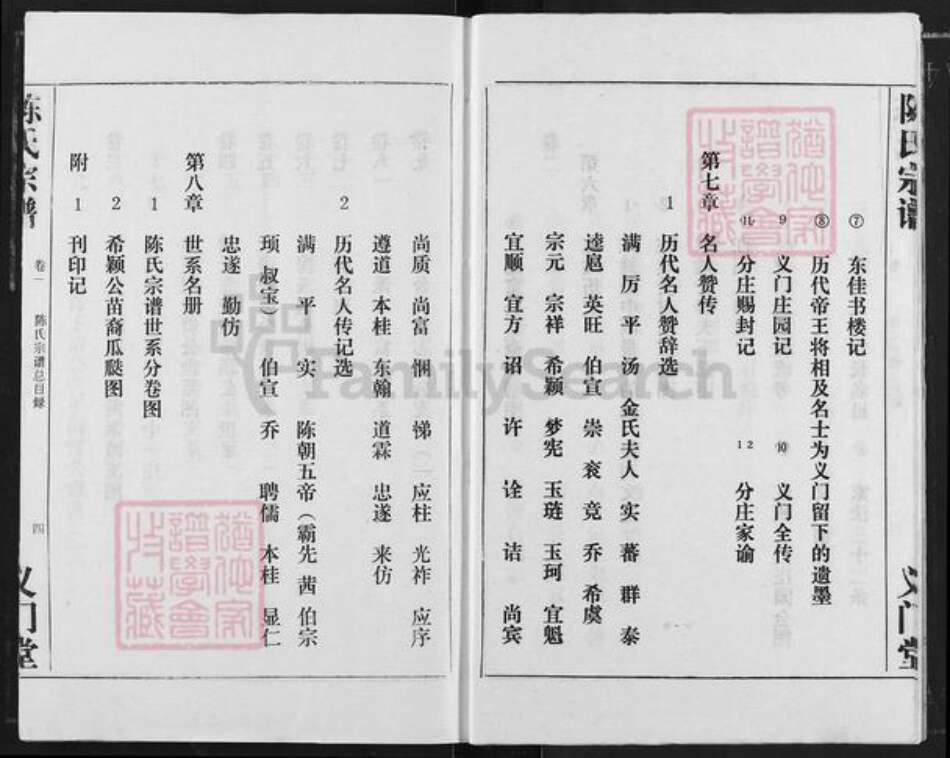 陈氏宗谱
义门堂
⑦ 东佳书楼记
⑧ 历代帝王将相及名士为义门留下的遗墨
⑨ 义门庄园记 ⑩ 义门全传
⑪ 分庄赐封记 12 分庄家谕
第七章 名人赞传
1 历代名人赞辞选
满 厉 平 汤 金氏夫人 实 蕃 群 泰
逵扈 英旺 伯宣 崇 衮 竞 乔 希虞
宗元 宗祥 希颖 梦宪 玉琏 玉珂 宜魁
宜顺 宜方 诏 许 诠 诘 尚宾
尚质 尚富 悃 悌 应柱 光祚 应序
遵道 本桂 东翰 道霖 忠遂 来仿
2 历代名人传记选
满 平 实 陈朝五帝（霸先 茜 伯宗
顼 叔宝） 伯宣 乔 聘儒 本桂 显仁
忠遂 勤仿
第八章 世系名册
1 陈氏宗谱世系分卷图
2 希颖公苗裔瓜瓞图
附 1 刊印记
陈氏宗谱
卷一
陈氏宗谱总目录
四
义门堂
猶他家
譜學會
收藏
猶他家
譜學會
收藏
FamilySearch